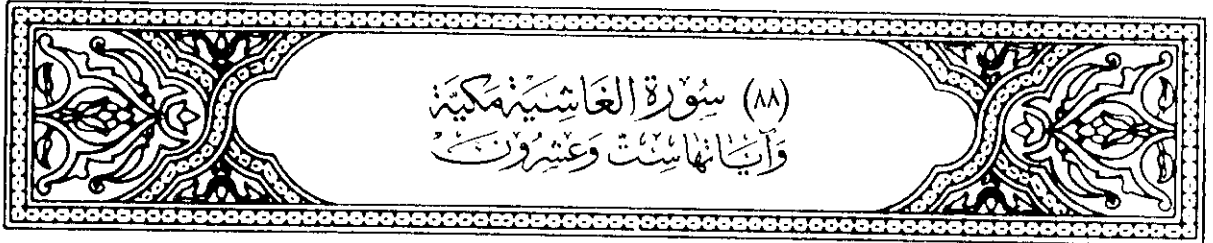 (٨٨) سُورَة الغَاشِيَة مَكيَّة
وَآيَاتهَا سِتّ وَعِشْرُونَ